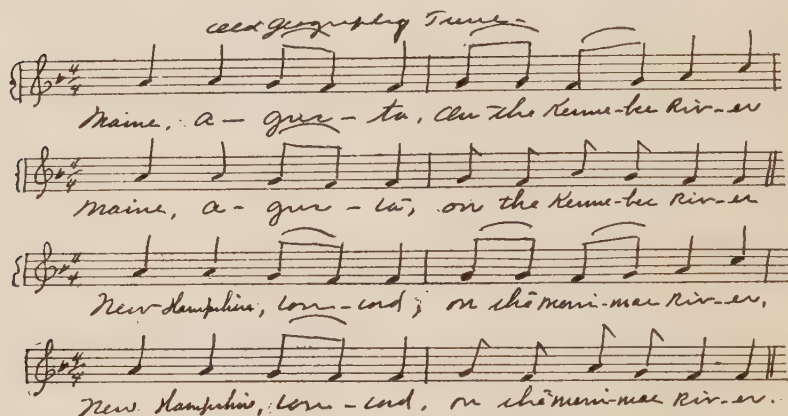 Old Geography Tune-
4 4
Maine, a- gus - ta, On the Kenne-bec Riv-er
4 4
Maine, a - gus - ta, on the Kenne-bec Riv-er
4 4
New Hampshire, Con-cord, on the merri-mac Riv-er,
4 4
New Hampshire, Con-cord, on the merri-mac Riv-er.